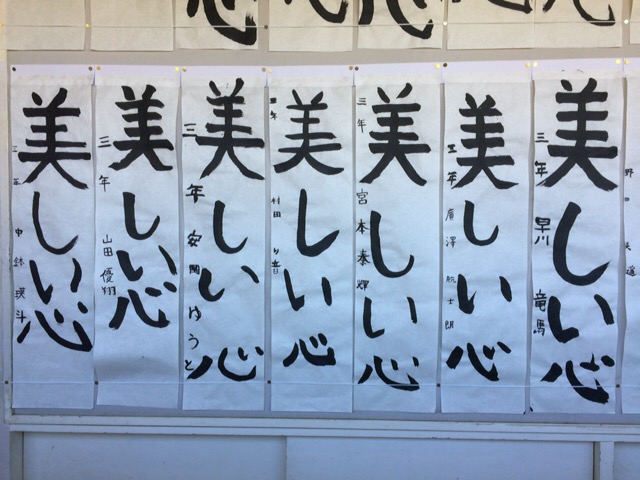 美しい心
三年 早川 竜馬
美しい心
三年
美しい心
三年 宮本泰輝
美しい心
三年 村田
美しい心
三年 安間ゆうと
美しい心
三年 山田優翔
美しい心
三年 中鉢瑛斗